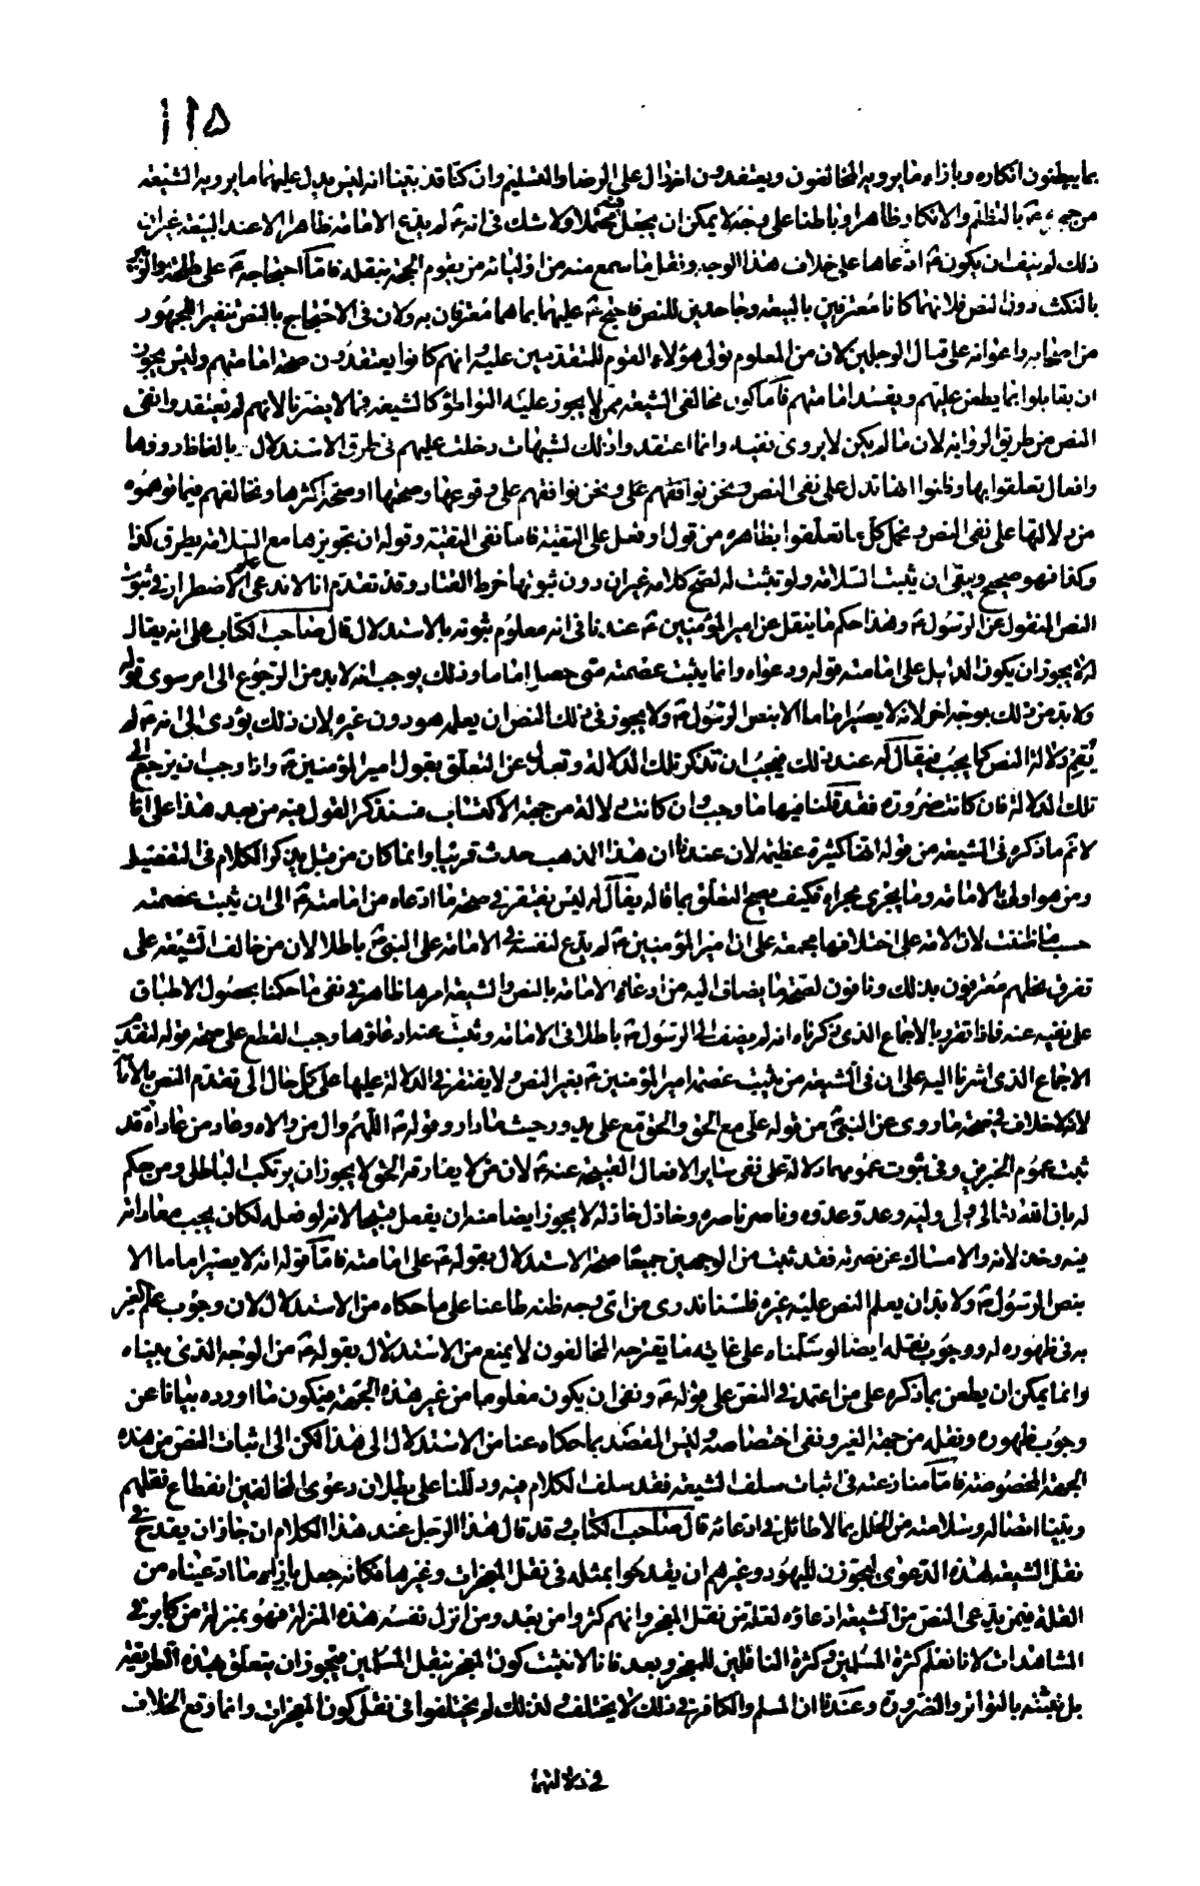 ١١٥
بما يبطنون انكاره وبازاء ما يرويه المخالفون ويعتقدون من اظهار على الرضا والتسليم وان كنا قد بينا انه ليس يدل عليهما ما يرويه الشيعة
من جهته ع بالتظلم والانكار ظاهرا وباطنا على وجه لا يمكن ان يجعل محتملا ولا شك في انه ع لم يدع الامامة ظاهرا الا عند البيعة غير ان
ذلك لم ينف ان يكون ع ادعاها على خلاف هذا الوجه ونقل ما سمع منه من اوليائه من يقوم الحجة بنقله فاما احتجاجه ع على طلحة والزبير
بالنكث دون النص فلانهما كانا معترفين بالبيعة وجاحدين للنص فاحتج ع عليهما بما هما معترفان به ولان في الاحتجاج بالنص تنفير الجمهور
من اصحابه واعوانه على قتال الرجلين لان من المعلوم تولى هؤلاء القوم للمتقدمين عليه وانهم كانوا يعتقدون صحة امامتهم وليس يجوز
ان يقابلوا بما يطعن عليهم ويفسد امامتهم فاما كون مخالفي الشيعة ممن لا يجوز عليه التواطؤ كالشيعة فما لا يضرنا لانهم لم يعتقدوا نفي
النص من طريق الرواية لان ما لم يكن لا يروى نفيه وانما اعتقدوا ذلك لشبهات دخلت عليهم في طرق الاستدلال بالفاظ رووها
وافعال تعلقوا بها وظنوا انها تدل على نفي النص ونحن نوافقهم على وقوعها وصحتها او صحة اكثرها ونخالفهم فيما توهموه
من دلالتها على نفي النص ونحمل كل ما تعلقوا بظاهره من قول او فعل على التقية فاما نفي التقية وقوله ان تجويزها مع السلامة يطرق كذا
وكذا فهو صحيح ويبقى ان يثبت السلامة ولو تثبت له لصح كلامه غير ان دون ثبوتها خرط القتاد وقد تقدم انا لا ندعي الاضطرار في ثبوت
النص المنقول عن الرسول ع وهذا حكم ما ينقل عن امير المؤمنين ع عندنا في انه معلوم ثبوته بالاستدلال قال صاحب الكتاب على انه يقال
له لا يجوز ان يكون الدليل على امامته قوله ودعواه وانما يثبت عصمته متى حصل اماما وذلك يوجب انه لا بد من الرجوع الى امر سوى قوله
ولا بد من ذلك بوجه اخر لانه لا يصير اماما الا بنص الرسول ع ولا يجوز في ذلك النص ان يعلمه هو دون غيره لان ذلك يؤدي الى انه ع لم
يقم دلالة النص كما يجب فيقال له عند ذلك فيجب ان تذكر تلك الدلالة وتعدل عن التعلق بقول امير المؤمنين ع واذا وجب ان يرجع الى
تلك الدلالة فان كانت ضرورة فقد قلنا فيها ما وجب وان كانت دلالة من جهة الاكتساب فسنذكر القول فيه من بعد هذا على انا
لا نعم ما ذكره في الشيعة من قوله انها كثيرة عظيمة لان عندنا ان هذا المذهب حدث قريبا وانما كان من قبل يذكر الكلام في التفضيل
ومن هو اولى بالامامة وما يجري مجراه فكيف يصح التعلق بما قاله يقال له ليس يفتقر في صحة ما ادعاه من امامته ع الى ان يثبت عصمته
حسب ما ظننت لان الامة على اختلافها مجمعة على ان امير المؤمنين ع لم يدع لنفسه في الامامة على النبي ع باطلا لان من خالف الشيعة على
تفرق نحلهم معترفون بذلك ونافون لصحة ما يضاف اليه من ادعائه الامامة بالنص والشيعة امرها ظاهر في نفي ما حكنا بحصول الاطباق
على نفيه عنه فاذا تقرر بالاجماع الذي ذكرناه انه لم يضف الى الرسول ع باطلا في الامامة وثبت عنه ادعاؤها وجب القطع على صحة قوله لتقدم
الاجماع الذي اشرنا اليه على ان في الشيعة من يثبت عصمة امير المؤمنين ع بغير النص ولا يفتقر في الدلالة عليها على كل حال الى تقدم النص بالامامة
لانه لا خلاف في صحة ما روى عن النبي ع من قوله علي مع الحق والحق مع علي يدور حيث ما دار وقوله ع اللهم وال من والاه وعاد من عاداه قد
ثبت عموم الخبرين وفي ثبوت عمومهما دلالة على نفي ساير الافعال القبيحة عنه ع لان من لا يفارقه الحق لا يجوز ان يرتكب الباطل ومن حكم
له بان الله تعالى ولي وليه وعدو عدوه وناصر ناصره وخاذل خاذله لا يجوز ايضا منه ان يفعل قبيحا لانه لو فعله لكان يجب معاداته
فيه وخذلانه والامساك عن نصرته فقد ثبت من الوجهين جميعا صحة الاستدلال بقوله ع على امامته فاما قوله انه لا يصير اماما الا
بنص الرسول ع ولا بد ان يعلم النص عليه غيره فلسنا ندري من اي وجه ظنه طاعنا على ما حكاه من الاستدلال لان وجوب علم الغير
به في ظهوره له ووجوب نقله ايضا لو سلمناه على غاية ما يقترحه المخالفون لا يمنع من الاستدلال بقوله ع من الوجه الذي بيناه
وانما يمكن ان يطعن بما ذكره على من اعتمد في النص على قوله ع ونفى ان يكون معلوما من غير هذه الجهة فيكون ما اورده بيانا عن
وجوب ظهوره ونقله من جهة الغير ونفى اختصاصه وليس القصد بما حكاه عنا من الاستدلال الى هذا لكن الى اثبات النص من هذه
الجهة المخصوصة فاما منازعته في اثبات سلف الشيعة فقد سلف الكلام فيه ودللنا على بطلان دعوى المخالفين انقطاع نقلهم
وبينا اتصاله وسلامته من الخلل بما لا طائل في ادعائه قال صاحب الكتاب وقد قال هذا الرجل عند هذا الكلام ان جاز ان يقدح في
نقل الشيعة هذه الدعوى ليجوزن لليهود وغيرهم ان يقدحوا بمثله في نقل المعجزات وغيرها فكانه جعل بازاء ما ادعيناه من
القلة فيمن يدعي النص من الشيعة ادعاؤه لقلة من نقل المعجز وانهم كثروا من بعد ومن انزل نفسه هذه المنزلة فهو بمنزلة من كابر في
المشاهدات لانا نعلم كثرة المسلمين وكثرة الناقلين للمعجز وبعد فانا لا نثبت كون المعجز بنقل المسلمين فيجوز ان يتعلق بهذه الطريقة
بل نثبته بالتواتر والضرورة وعندنا ان المسلم والكافر في ذلك لا يختلف ولذلك لم يختلفوا في نقل كون المعجزات وانما وقع الخلاف
في دلالتها